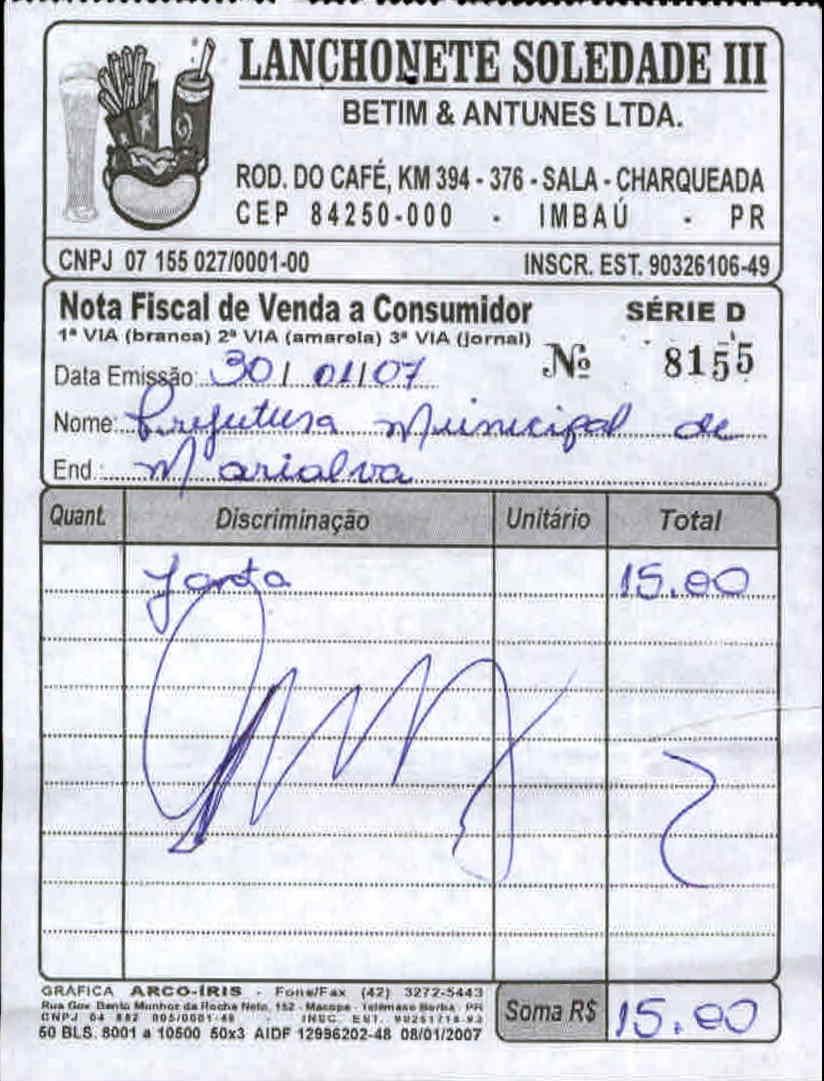 LANCHONETE SOLEDADE III
BETIM & ANTUNES LTDA.
ROD. DO CAFÉ, KM 394 - 376 - SALA - CHARQUEADA
CEP 84250-000 - IMBAÚ - PR
CNPJ 07 155 027/0001-00 INSCR. EST. 90326106-49
Nota Fiscal de Venda a Consumidor SÉRIE D
1ª VIA (branca) 2ª VIA (amarela) 3ª VIA (jornal)
Nº 8155
Data Emissão: 30/01/07
Nome: Prefeitura Municipal de
End.: Marialva
Quant. Discriminação Unitário Total
Janta 15.00
GRAFICA ARCO-ÍRIS - Fone/Fax (42) 3272-5443
Rua Gov. Bento Munhoz da Rocha Neto, 152 - Macopa - Telêmaco Borba - PR
CNPJ 04 882 005/0001-48 - INSC. EST.
50 BLS. 8001 a 10500 50x3 AIDF 12996202-48 08/01/2007
Soma R$ 15.00